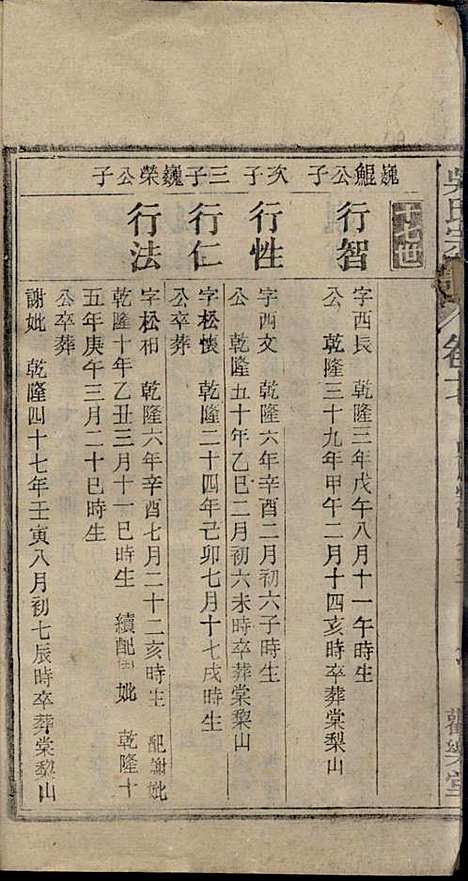 吳氏宗
卷
巍鯤公子
次子
三子
巍榮公子
世
行智
字西辰　乾隆三年戊午八月十一午時生
公　乾隆三十九年甲午二月十四亥時卒葬棠梨山
行性
字西文　乾隆六年辛酉二月初六子時生
公　乾隆五十年乙巳二月初六未時卒葬棠梨山
行仁
字松懷　乾隆二十四年己卯七月十七戌時生
公卒葬
行法
字松和　乾隆六年辛酉七月二十二亥時生　配謝妣
乾隆十年乙丑三月十一巳時生　續配　妣　乾隆十
五年庚午三月二十巳時生
公卒葬
謝妣　乾隆四十七年壬寅八月初七辰時卒葬棠梨山